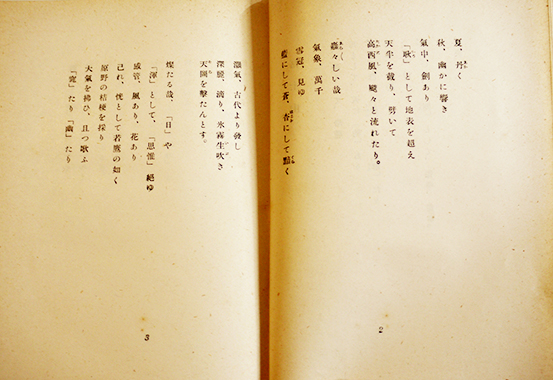 夏、丹く
秋、幽かに響き
氣中、劍あり
「耿」として地表を超え
天半を截り、劈いて
高西風、颼々と流れたり。
蟲々しい哉
氣象、萬千
雪冠、見ゆ
藍にして蒼、杳にして黯く
2
古代より發し
滴り、氷霧生吹き
天關を擊たんとす。
燦たる哉、「日」や
「渾」として、「思惟」絕ゆ
感管、風あり、花あり
己れ、恍として若鷹の如く
原野の桔梗を採り
大氣を拂ひ、且つ歌ふ
「寬」たり「幽」たり
3